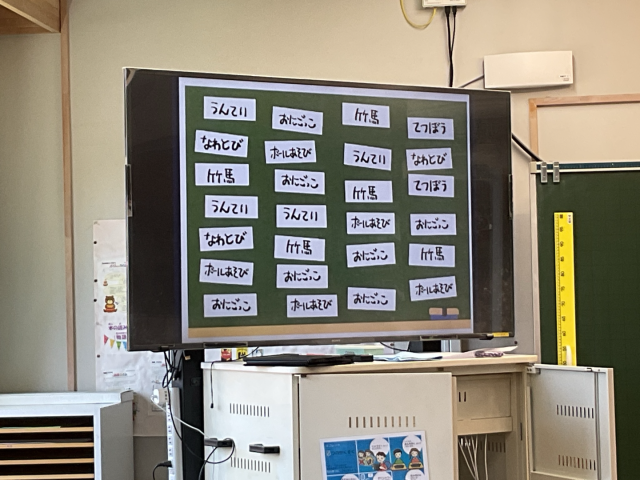 うんてい おにごっこ 竹馬 てつぼう
なわとび ボールあそび うんてい なわとび
竹馬 おにごっこ 竹馬 てつぼう
うんてい うんてい ボールあそび おにごっこ
なわとび 竹馬 おにごっこ 竹馬
ボールあそび おにごっこ ボールあそび
おにごっこ ボールあそび おにごっこ